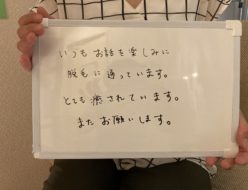 いつもお話を楽しみに
脱毛に通っています。
とても癒されています。
またお願いします。